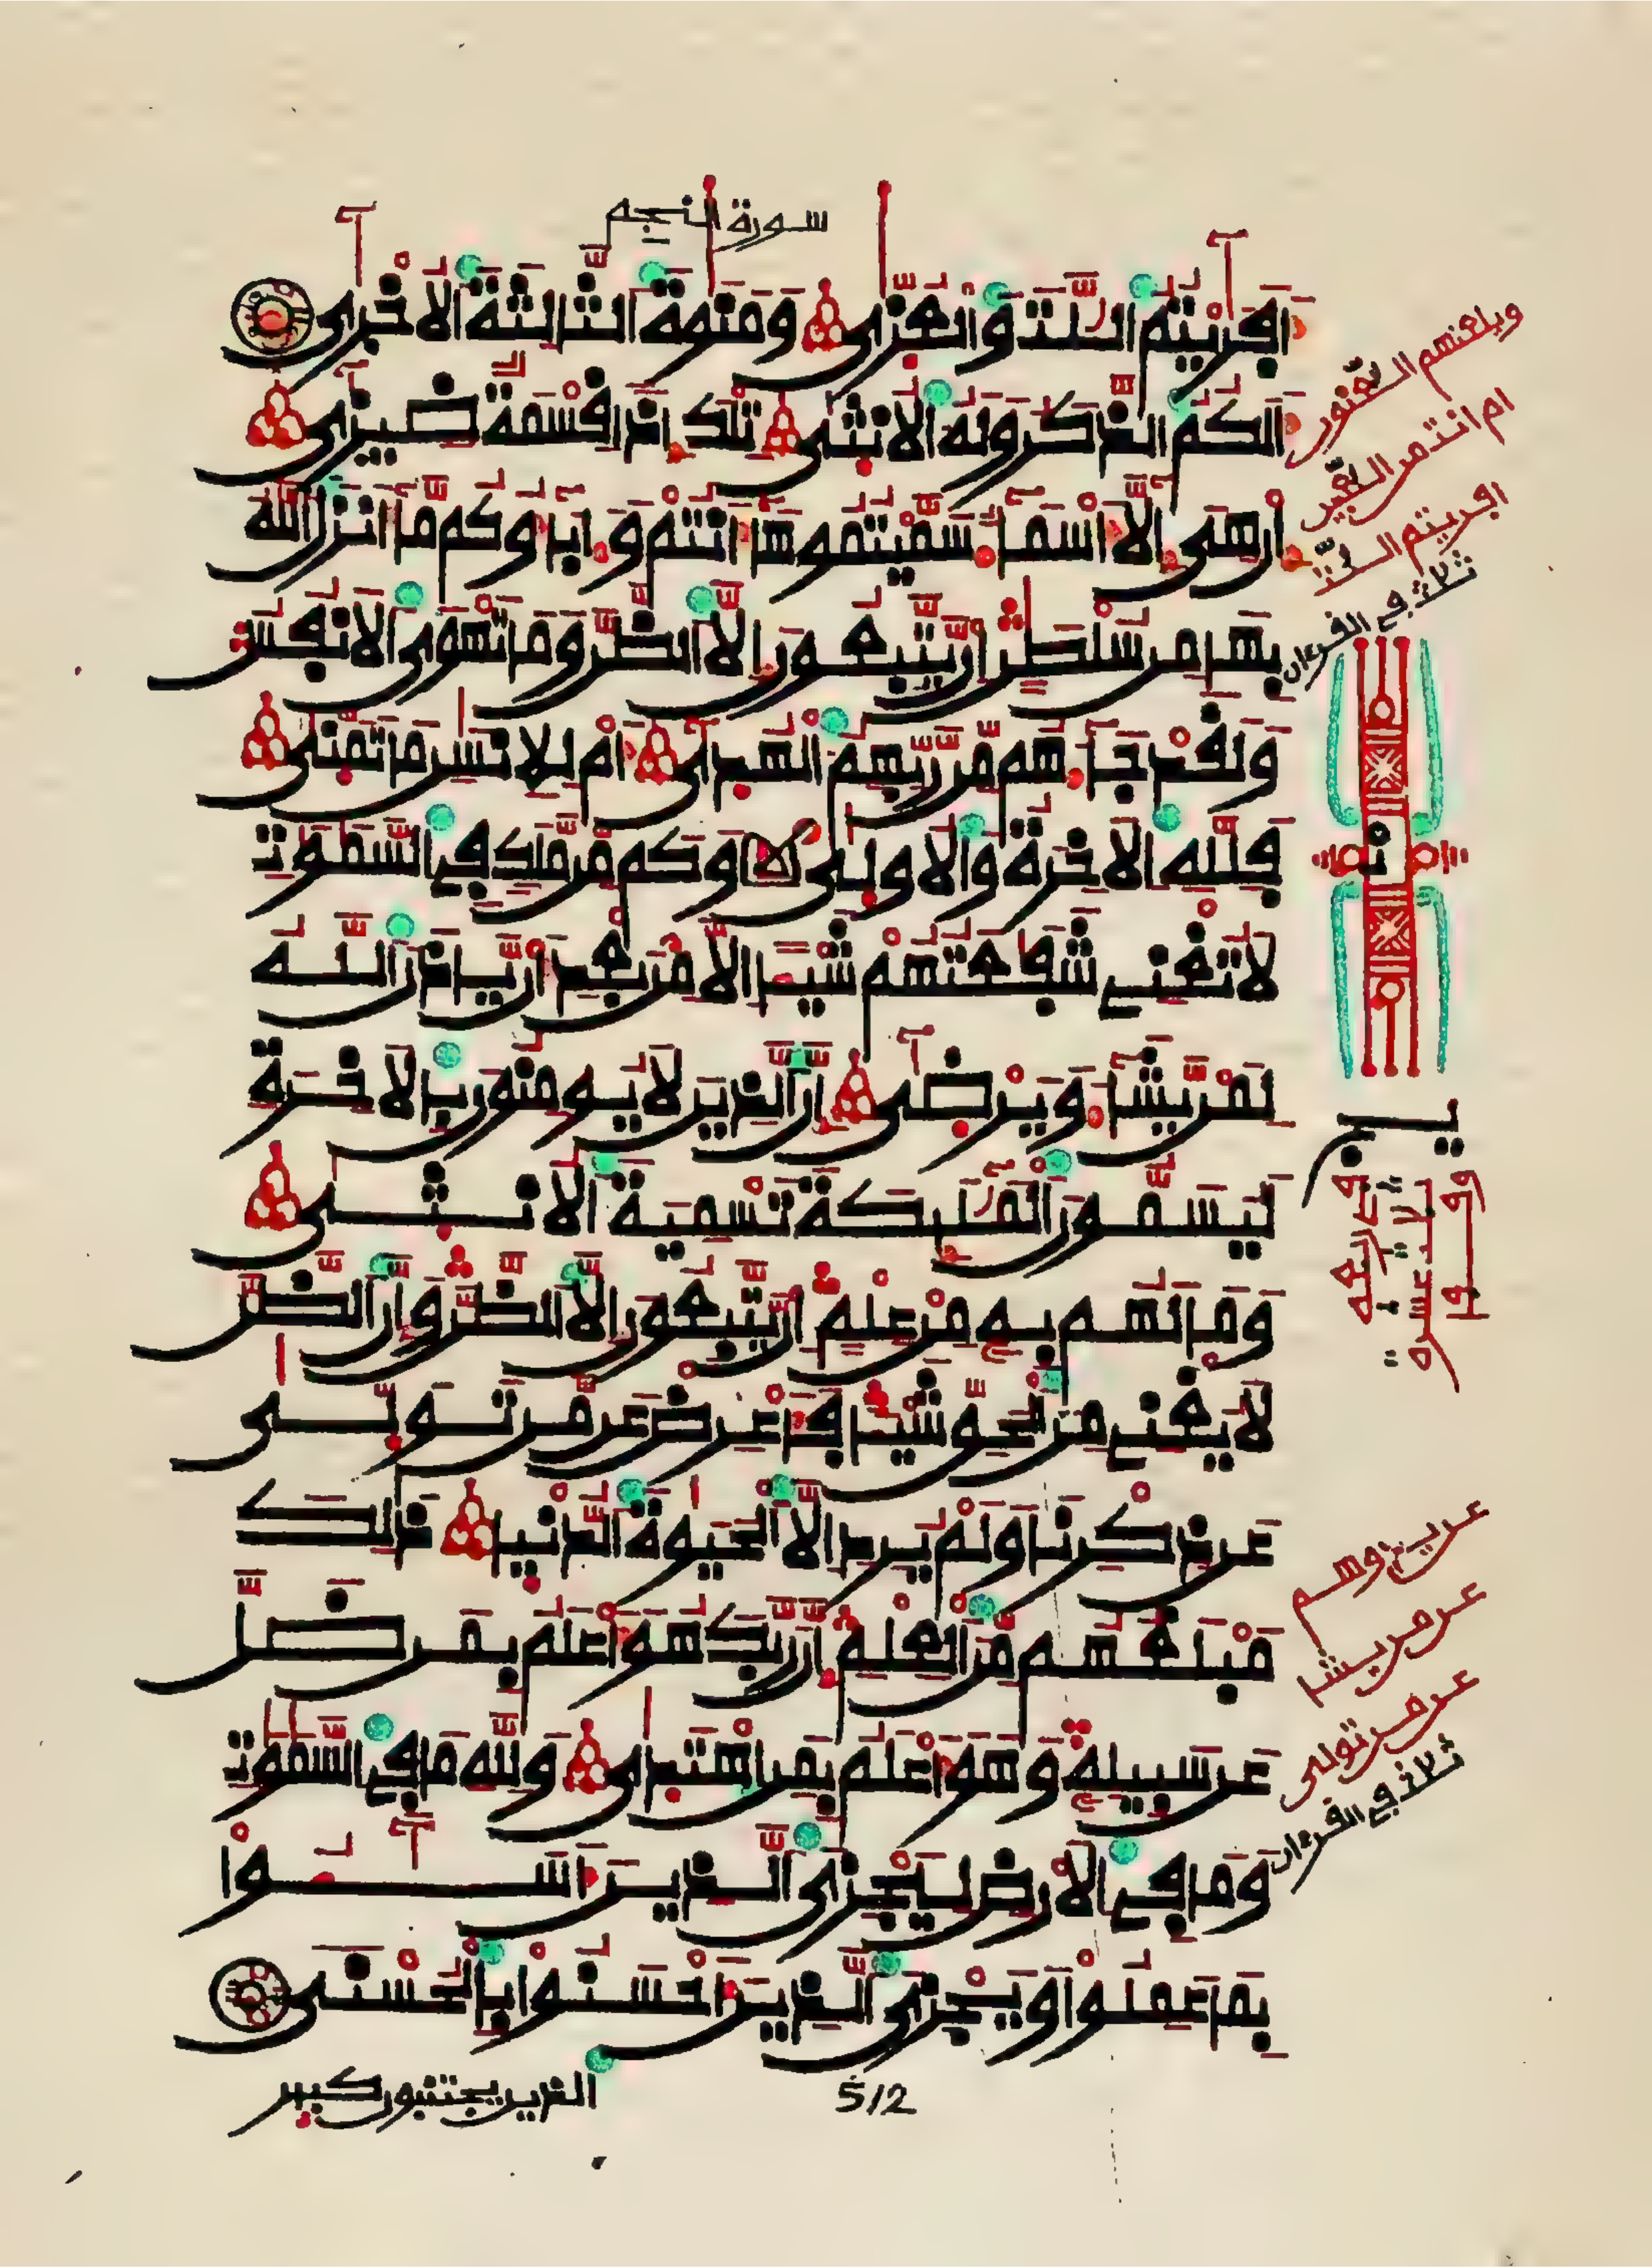 سورة النجم
أَفَرَيْتُمُ اللَّتَ وَالْعُزّٜي وَمَنَوٰةَ الثَّالِثَةَ الْأُخْرٜي
أَلَكُمُ الذَّكَرُ وَلَهُ الْأُنثٜي تِلْكَ إِذاً قِسْمَةٌ ضِيزٜي
إِنْ هِيَ إِلَّا أَسْمَاءٌ سَمَّيْتُمُوهَا أَنتُمْ وَءَابَاؤُكُم مَّا أَنزَلَ اللَّهُ
بِهَا مِن سُلْطَٰنٍ إِن يَتَّبِعُونَ إِلَّا الظَّنَّ وَمَا تَهْوَى الْأَنفُسُ
وَلَقَدْ جَاءَهُم مِّن رَّبِّهِمُ الْهُدٜي أَمْ لِلْإِنسَٰنِ مَا تَمَنّٜي
فَلِلَّهِ الْأَخِرَةُ وَالْأُولٜي وَكَم مِّن مَّلَكٍ فِي السَّمَٰوَٰتِ
لَا تُغْنِي شَفَٰعَتُهُمْ شَيْئاً إِلَّا مِن بَعْدِ أَن يَّأْذَنَ اللَّهُ
لِمَن يَّشَاءُ وَيَرْضٜي إِنَّ الَّذِينَ لَا يُومِنُونَ بِالْأَخِرَةِ
لَيُسَمُّونَ الْمَلَٰئِكَةَ تَسْمِيَةَ الْأُنثٜي
وَمَا لَهُم بِهِ مِنْ عِلْمٍ إِن يَّتَّبِعُونَ إِلَّا الظَّنَّ وَإِنَّ الظَّنَّ
لَا يُغْنِي مِنَ الْحَقِّ شَيْئاً فَأَعْرِضْ عَن مَّن تَوَلّٜي
عَن ذِكْرِنَا وَلَمْ يُرِدْ إِلَّا الْحَيَوٰةَ الدُّنْيٜا ذَٰلِكَ
مَبْلَغُهُم مِّنَ الْعِلْمِ إِنَّ رَبَّكَ هُوَ أَعْلَمُ بِمَن ضَلَّ
عَن سَبِيلِهِ وَهُوَ أَعْلَمُ بِمَنِ اهْتَدٜي وَلِلَّهِ مَا فِي السَّمَٰوَٰتِ
وَمَا فِي الْأَرْضِ لِيَجْزِيَ الَّذِينَ أَسَٰـُٔوا
بِمَا عَمِلُوا وَيَجْزِيَ الَّذِينَ أَحْسَنُوا بِالْحُسْنٜي
الذين يجتنبون كبير
512
ويلعنهم اللّعنون
ام انتم من اللّعبين
افريتم اللّت
ثلاث في القرءان
عن يمح وهم
عن من يشا
عن من تولى
ثلاث في القرءان